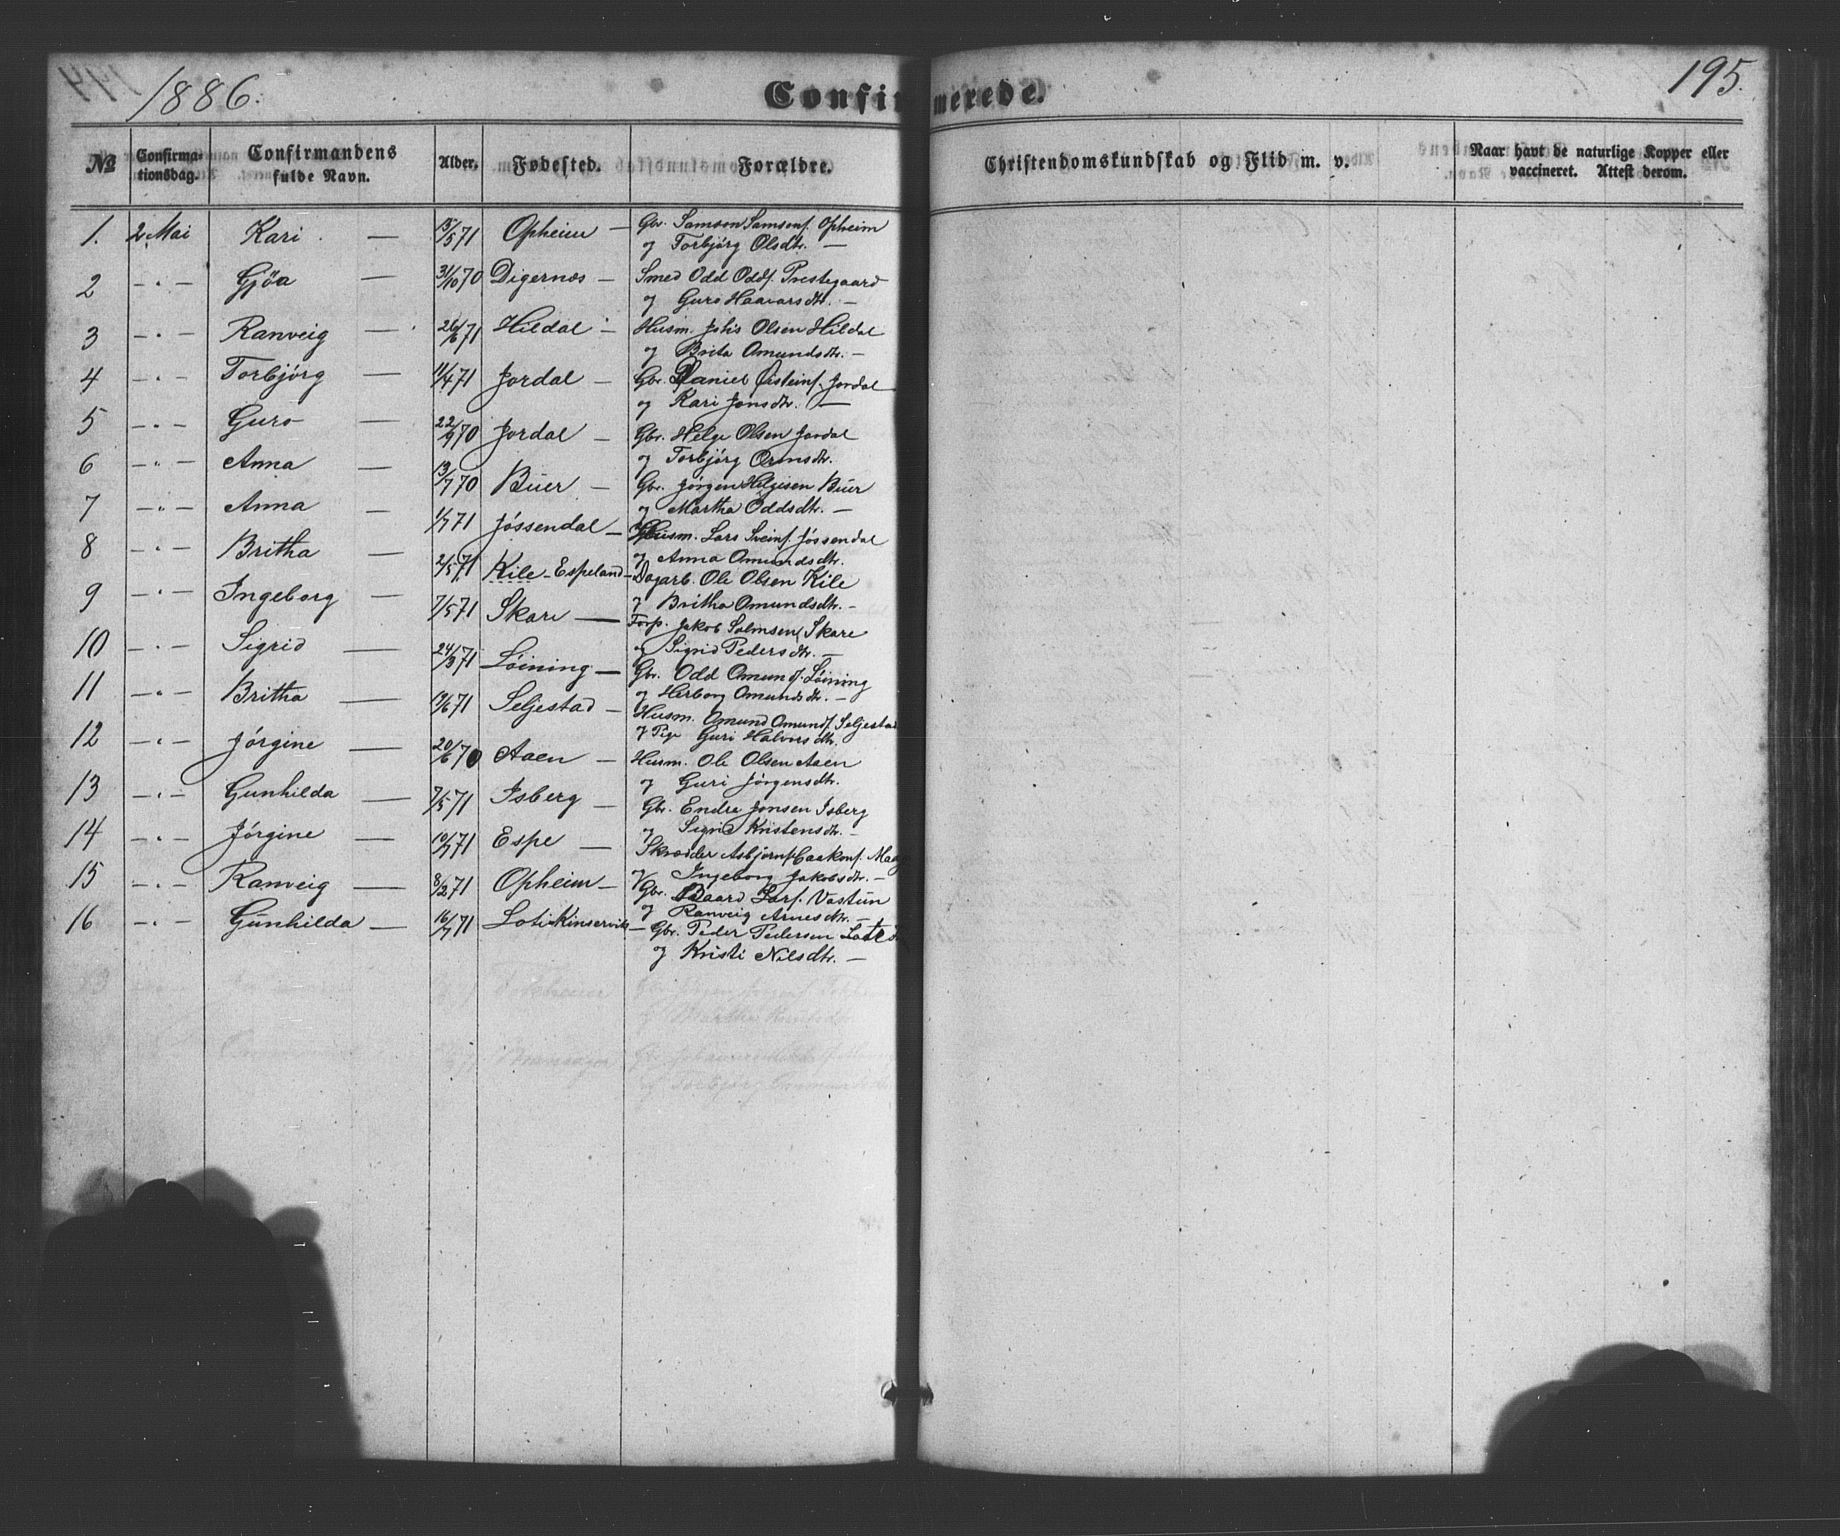 1886.
Confirmerede.
195.
№ Confirmationsdag. Confirmandens fulde Navn. Alder. Fødested. Forældre. Christendomskundskab og Flid m. v. Naar havt de naturlige Kopper eller vaccineret. Attest derom.
1. 2 Mai Kari — 15/5 71 Opheim — Gbr. Samson Samsons. Opheim
og Torbjørg Olsdtr. —
2 - " - Gjøa — 31/10 70 Digernæs — Smed Odd Odds. Prestegaard
og Guro Haavarsdtr. —
3 - " - Ranveig — 26/6 71 Hildal — Husm. Johs Olsen Hildal
og Brita Omundsdtr. —
4 - " - Torbjörg — 11/4 71 Jordal — Gbr. Daniel Øisteins. Jordal
og Kari Jonsdtr. —
5 - " - Guro — 22/9 70 Jordal — Gbr. Helge Olsen Jordal
og Torbjörg Ormsdtr.
6 - " - Anna — 13/7 70 Buer — Gbr. Jørgen Helgesen Buer
og Martha Oddsdtr. —
7 - " - Anna — 1/7 71 Jóssendal — Husm. Lars Sveins. Jóssendal
og Anna Omundsdtr.
8 - " - Britha — 2/5 71 Kile-Espeland — Dagarb. Ole Olsen Kile
og Britha Omundsdtr. —
9 - " - Ingeborg — 7/5 71 Skare — Forp. Jakob Salmsen Skare
og Sigrid Pedersdtr. —
10 - " - Sigrid — 24/3 71 Löining — Gbr. Odd Omunds. Löining
og Herborg Omundsdtr. —
11 - " - Britha — 19/6 71 Seljestad — Husm. Omund Omunds. Seljestad
og Pige Guri Halvorsdtr.
12 - " - Jórgine — 20/6 70 Aaen — Husm. Ole Olsen Aaen
og Guri Jørgensdtr.
13 - " - Gunhilda — 7/5 71 Isberg — Gbr. Endre Jonsen Isberg
og Sigrid Kristensdtr. —
14 - " - Jórgine — 10/7 71 Espe — Skrædder Asbjørn
og Ingeborg Jakobsdtr. —
15 - " - Ranveig — 8/2 71 Opheim — Gbr. Baard Lars. Vastun
og Ranveig Arnesdtr. —
16 - " - Gunhilda — 16/7 71 Lote Kinservik — Gbr. Peder Pedersen Lote
og Kristi Nilsdtr. —